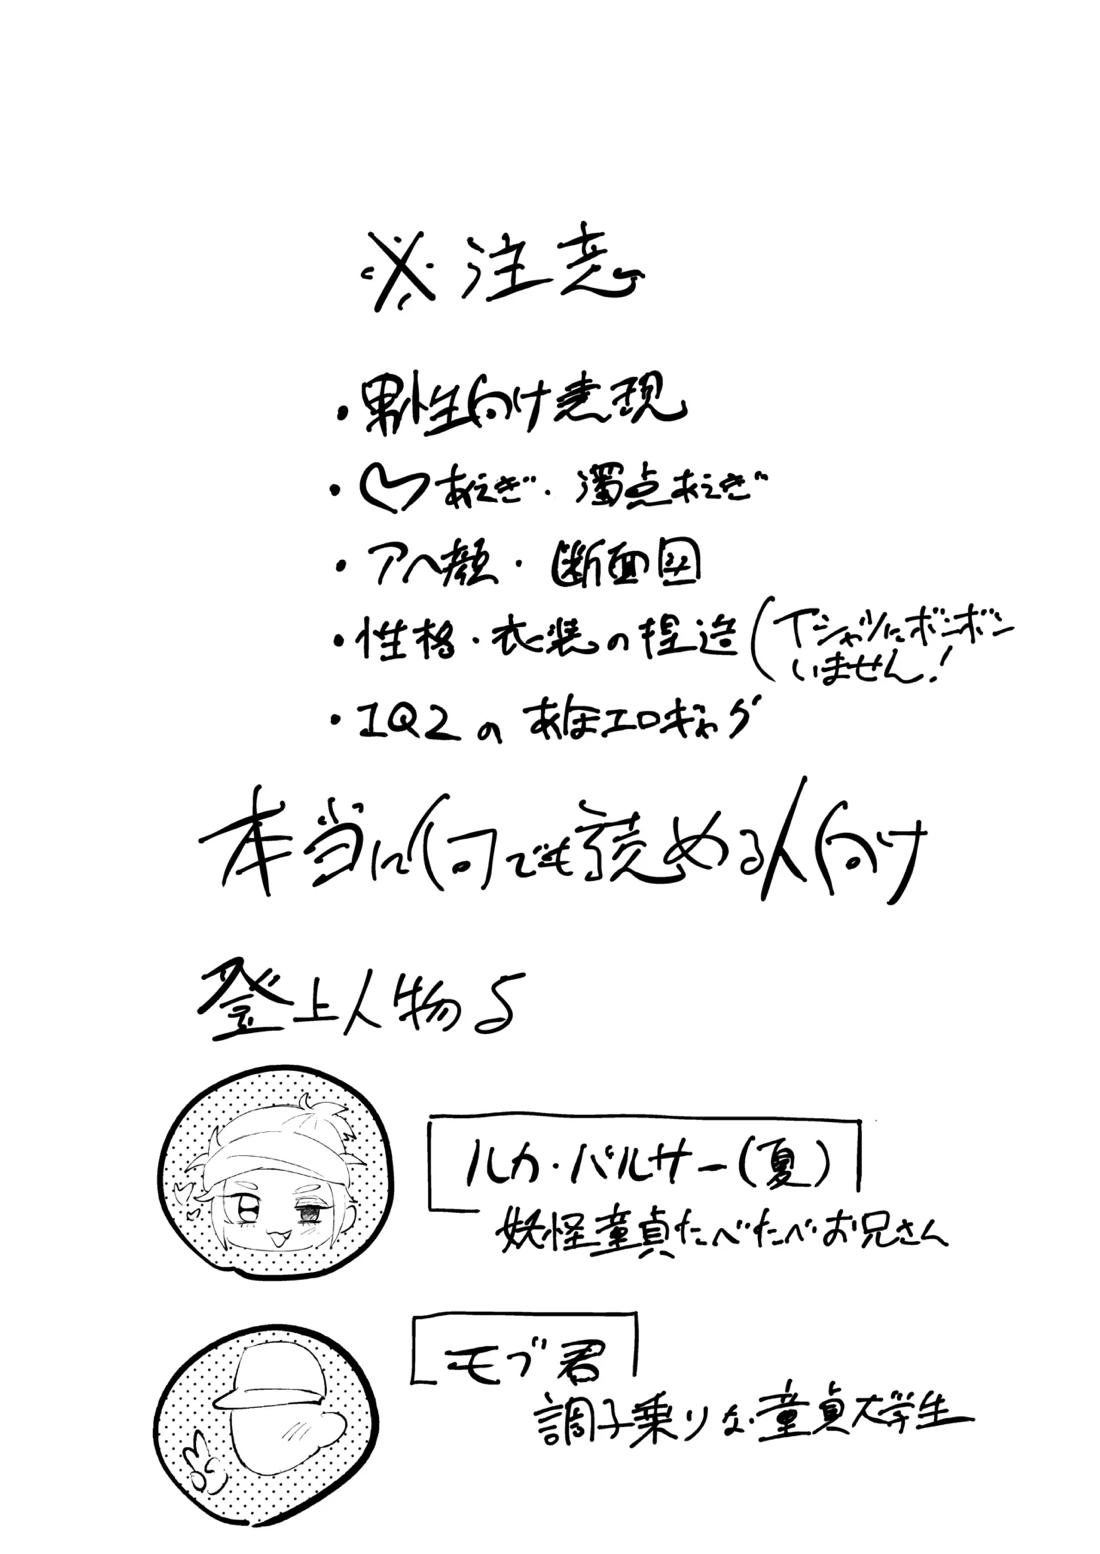 ※注意
・男性向け表現
・♡あえぎ・濁点あえぎ
・アヘ顔・断面図
・性格・衣装の捏造(TシャツにボンボンいませんI
・IQ2のあほエロギャグ
本当に何でも読める人向け
登上人物
ルカ・パルサー(夏)
妖怪童貞たべたべお兄さん
モブ君
調子乗りな童貞大学生